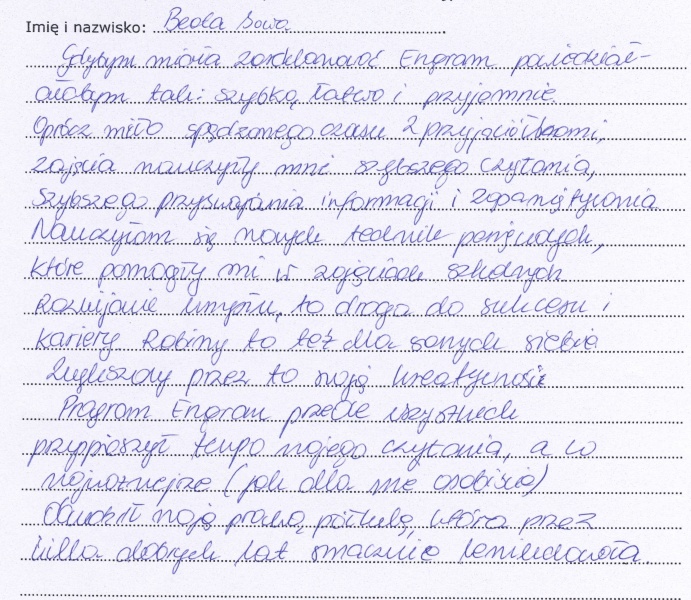 Imię i nazwisko: Beata Sowa
Gdybym miała zareklamować Engram powiedział-
ałabym tak: szybko, łatwo i przyjemnie.
Oprócz miło spędzonego czasu z przyjaciółkami,
zajęcia nauczyły mnie szybszego czytania,
szybszego przyswajania informacji i zapamiętywania
Nauczyłam się nowych technik pamięciowych,
które pomogły mi w zajęciach szkolnych
Rozwijanie umysłu, to droga do sukcesu i
kariery Robimy to też dla samych siebie
Zwiększamy przez to swoją kreatywność
Program Engram przede wszystkich
przyspieszył tempo mojego czytania, a co
najważniejsze (jak dla mnie osobiście)
Obudził moją prawą półkulę, która przez
kilka dobrych lat smacznie leniuchowała.